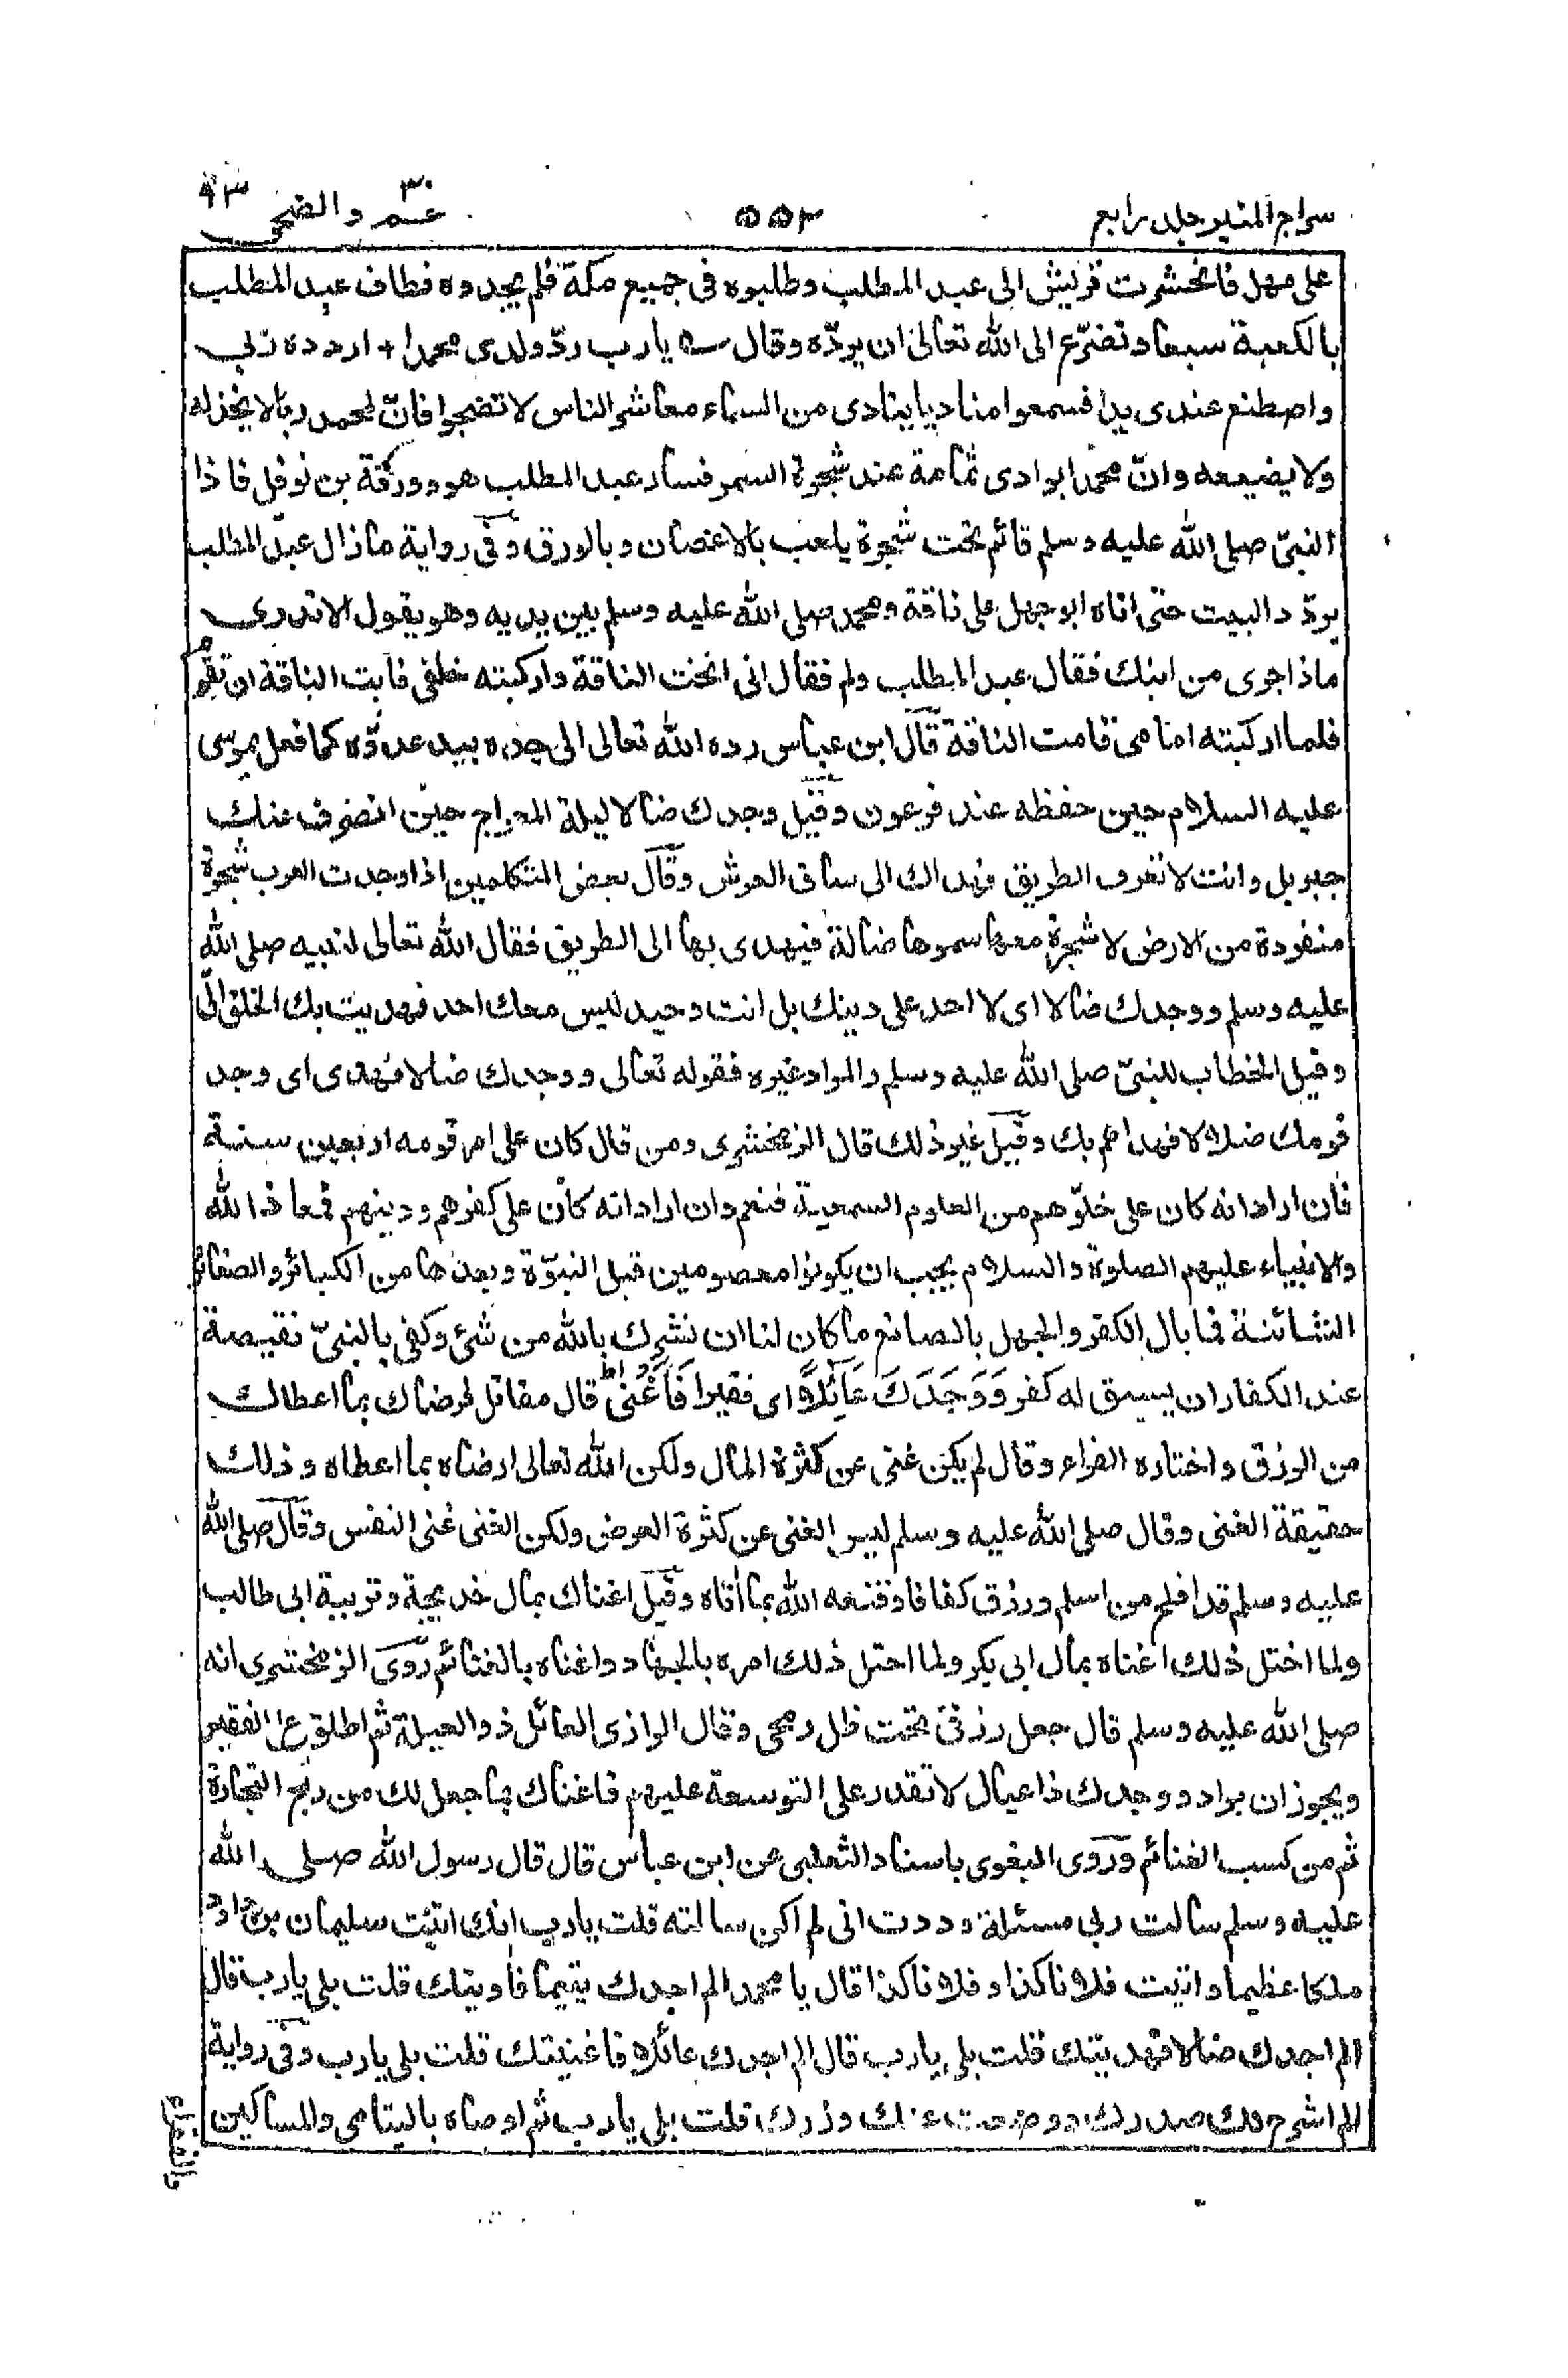 سراج المنير جلد رابع
٥٥٣
عـم ٣٠ والضحى ٩٣
على مهل فانحشرت قريش الى عبد المطلب وطلبوه فى جميع مكة فلم يجدوه فطاف عبد المطلب
بالكعبة سبعا وتضرّع الى الله تعالى ان يردّه وقال ؎ يا رب ردّ ولدى محمدا + اردده ربى
واصطنع عندى يدا فسمعوا مناديا ينادى من السماء معاشر الناس لا تضجوا فانّ لمحمد ربا لا يخذله
ولا يضيعه وانّ محمدا بوادى تهامة عند شجرة السمر فسار عبد المطلب هو وورقة بن نوفل فاذا
النبىّ صلى الله عليه وسلم قائم تحت شجرة يلعب بالاغصان وبالورق وفى رواية ما زال عبد المطلب
يردّد البيت حتى اتاه ابو جهل على ناقة ومحمد صلى الله عليه وسلم بين يديه وهو يقول الا تدرى
ماذا جرى من ابنك فقال عبد المطلب ولم فقال انى انخت الناقة واركبته خلفى فابت الناقة ان تقوم
فلما اركبته امامى قامت الناقة قال ابن عباس رده الله تعالى الى جده بيد عدوّه كما فعل بموسى
عليه السلام حين حفظه عند فرعون وقيل وجدك ضالا ليلة المعراج حين انصرف عنك
جبريل وانت لا تعرف الطريق فهداك الى ساق العرش وقال بعض المتكلمين اذا وجدت العرب شجرة
منفردة من الارض لا شجرة معها سموها ضالة فيهدى بها الى الطريق فقال الله تعالى لنبيه صلى الله
عليه وسلم ووجدك ضالا اى لا احد على دينك بل انت وحيد ليس معك احد فهديت بك الخلق الىّ
وقيل الخطاب للنبىّ صلى الله عليه وسلم والمراد غيره فقوله تعالى ووجدك ضالا فهدى اى وجد
قومك ضلالا فهداهم بك وقيل غير ذلك قال الزمخشرى ومن قال كان على امر قومه اربعين سنة
فان اراد انه كان على خلوّهم من العلوم السمعية فنعم وان اراد انه كان على كفرهم ودينهم فمعاذ الله
والانبياء عليهم الصلوة والسلام يجب ان يكونوا معصومين قبل النبوّة وبعدها من الكبائر والصغائر
الشائنة فما بال الكفر والجهل بالصانع ما كان لنا ان نشرك بالله من شئ وكفى بالنبىّ نقيصة
عند الكفار ان يسبق له كفر وَوَجَدَكَ عَآئِلًا اى فقيرا فَاَغْنٰى قال مقاتل فرضاك بما اعطاك
من الرزق واختاره الفراء وقال لم يكن غنى عن كثرة المال ولكن الله تعالى ارضاه بما اعطاه وذلك
حقيقة الغنى وقال صلى الله عليه وسلم ليس الغنى عن كثرة العرض ولكن الغنى غنى النفس وقال صلى الله
عليه وسلم قد افلح من اسلم ورزق كفافا وقنعه الله بما اٰتاه وقيل اغناك بمال خديجة وتربية ابى طالب
ولما اختل ذلك اغناه بمال ابى بكر ولما اختل ذلك امره بالجهاد واغناه بالغنائم روى الزمخشرى انه
صلى الله عليه وسلم قال جعل رزقى تحت ظل رمحى وقال الرازى العائل ذو العيلة ثم اطلق على الفقير
ويجوز ان يراد ووجدك ذا عيال لا تقدر على التوسعة عليهم فاغناك بما جعل لك من ربح التجارة
ثم من كسب الغنائم وروى البغوى باسناد الثعلبى عن ابن عباس قال قال رسول الله صلى الله
عليه وسلم سالت ربى مسئلة وددت انى لم اكن سالته قلت يا رب انك اتيت سليمان بن داود
ملكا عظيما واتيت فلانا كذا وفلانا كذا قال يا محمد الم اجدك يتيما فاٰويتك قلت بلى يا رب قال
الم اجدك ضالا فهديتك قلت بلى يا رب قال الم اجدك عائلا فاغنيتك قلت بلى يا رب وفى رواية
الم اشرح لك صدرك ووضعت عنك وزرك قلت بلى يا رب ثم اوصاه باليتامى والمساكين